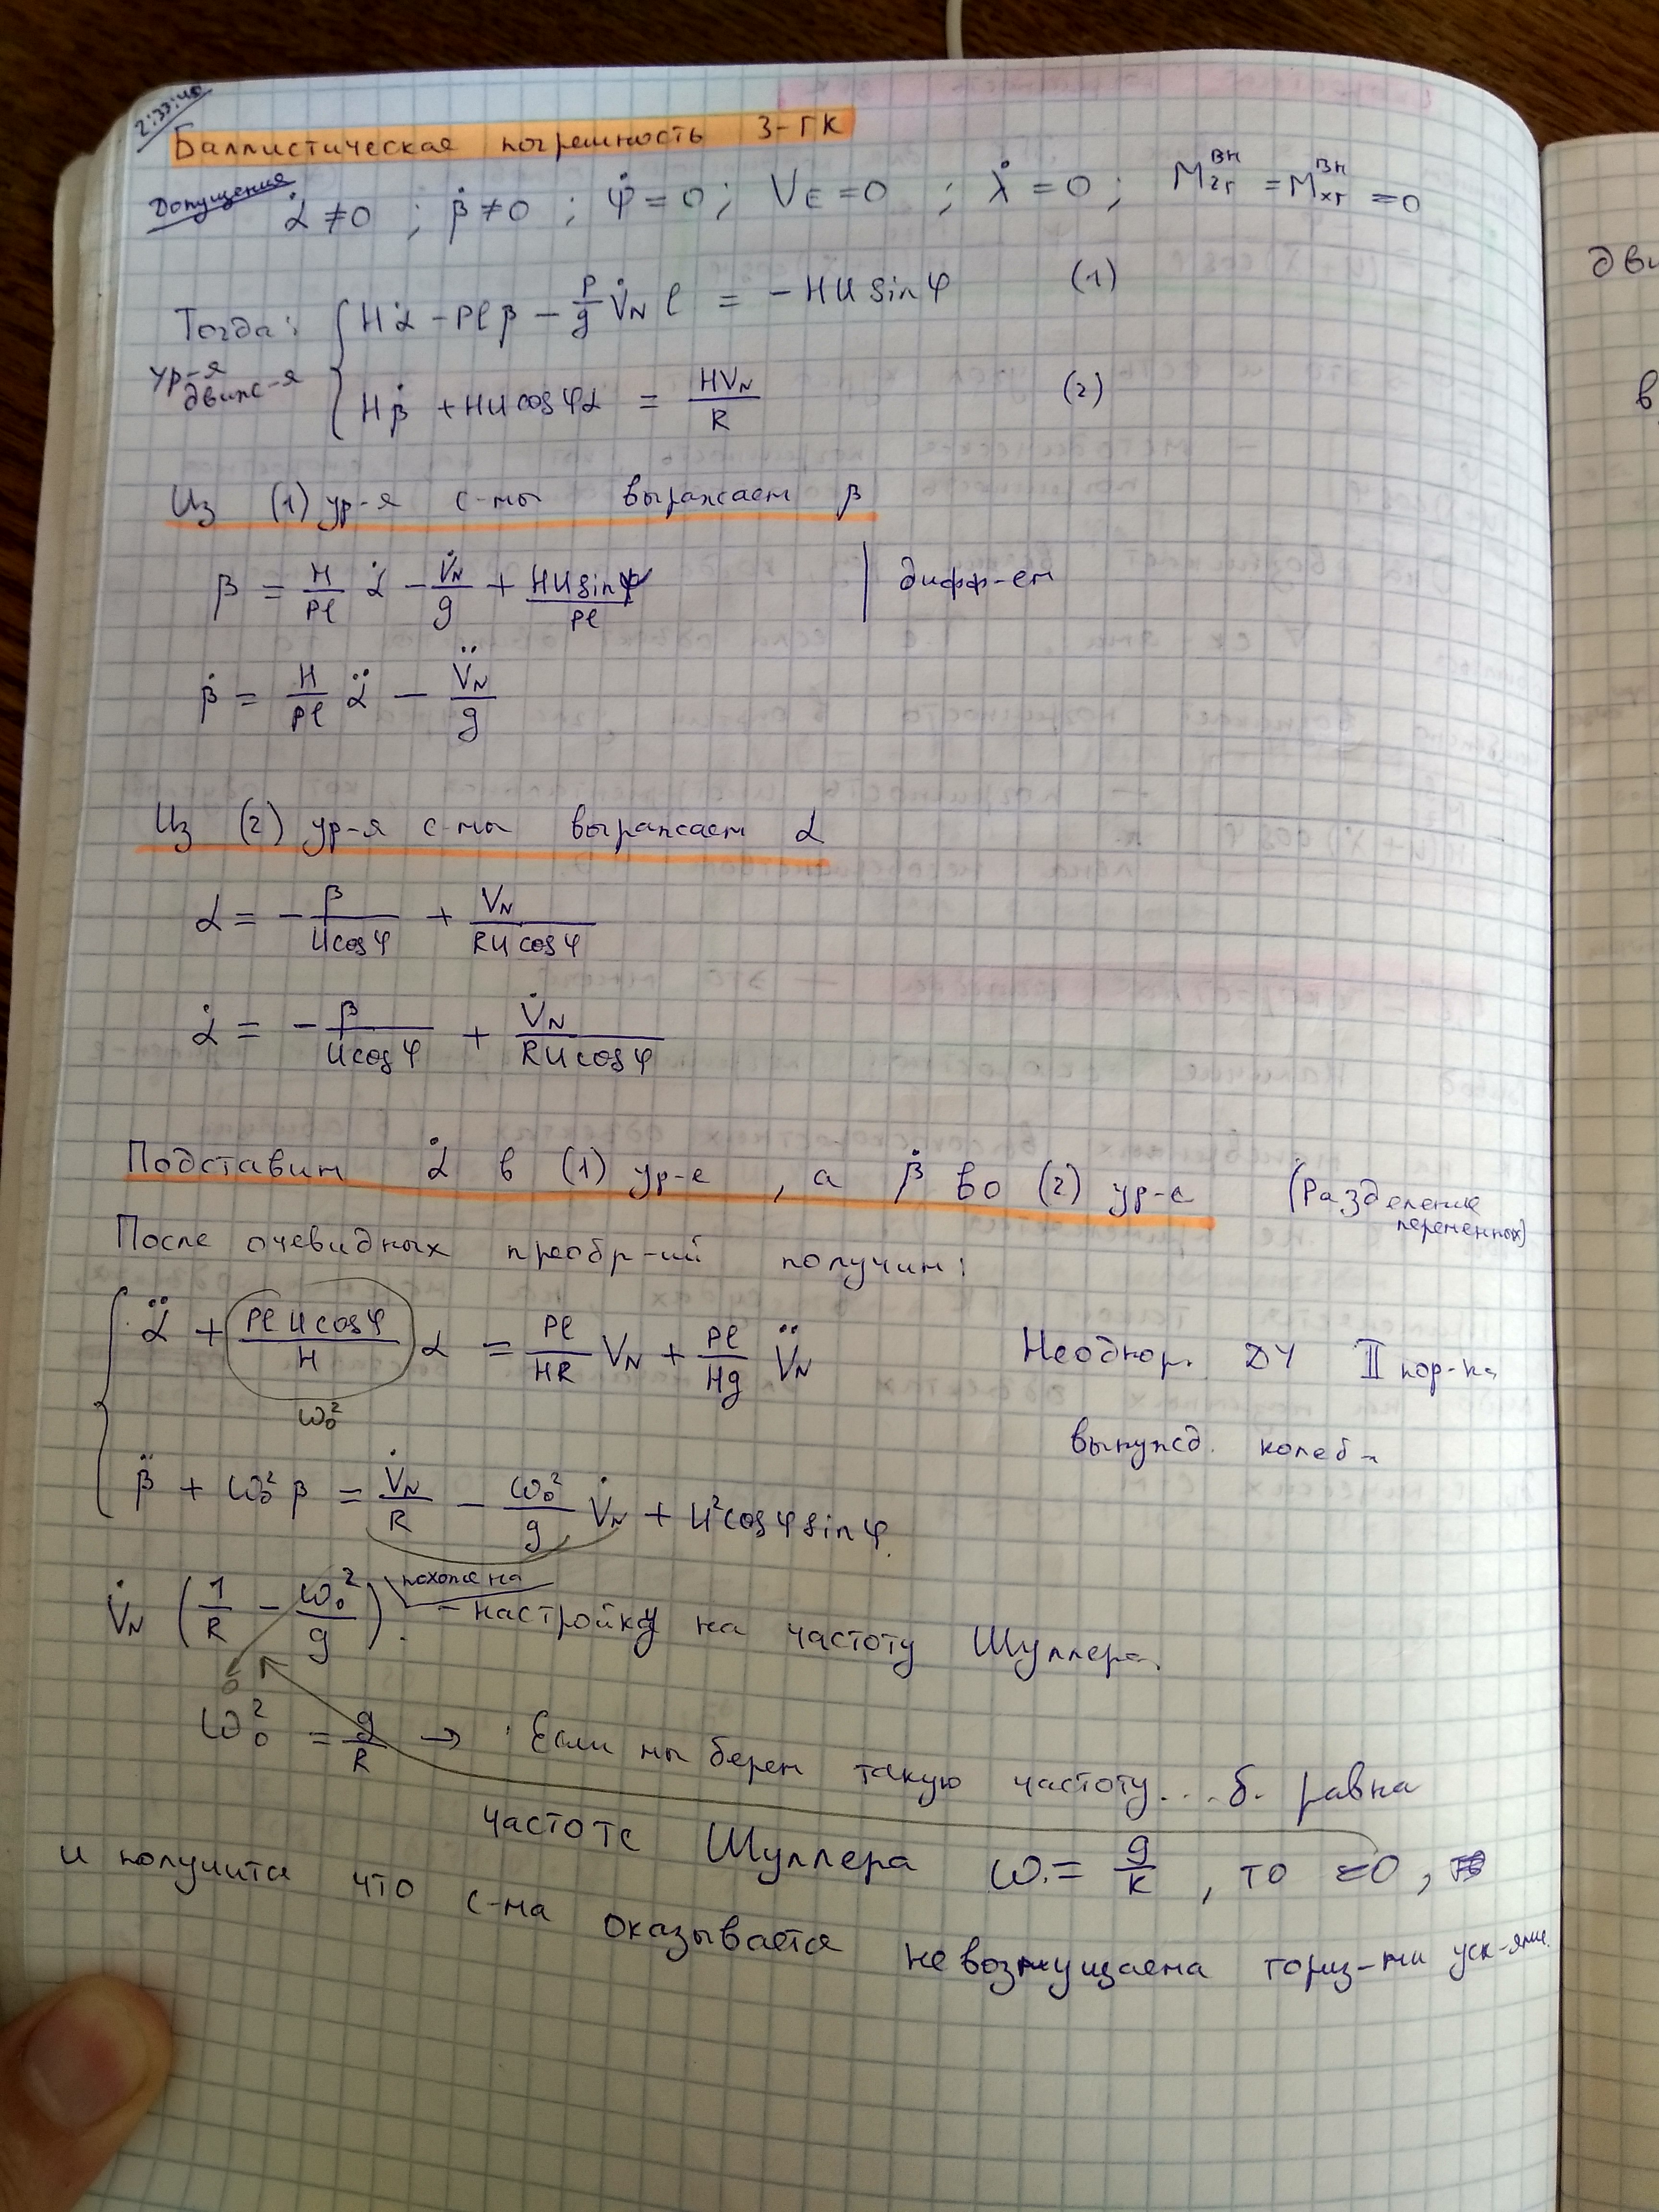 2:33:40
Баллистическая погрешность 3-ГК
Допущения
α̇ ≠ 0 ; β̇ ≠ 0 ; φ̇ = 0 ; V_E = 0 ; λ̇ = 0 ; M^ВН_zг = M^ВН_xг = 0
Тогда: { Hα̇ - Plβ - P/g V̇_N l = - HU sin φ (1)
ур-я движ-я
Hβ̇ + HU cos φ α = HV_N/R (2)
Из (1) ур-я с-мы выражаем β
β = H/Pl α̇ - V̇_N/g + HU sin φ/Pl | дифф-ем
β̇ = H/Pl α̈ - V̈_N/g
Из (2) ур-я с-мы выражаем α
α = - β̇/U cos φ + V_N/RU cos φ
α̇ = - β̈/U cos φ + V̇_N/RU cos φ
Подставим α̇ в (1) ур-е , а β̇ во (2) ур-е (Разделение
переменных)
После очевидных преобр-ий получим:
{ α̈ + Pl U cos φ/H α = Pl/HR V_N + Pl/Hg V̈_N Неоднор. ДУ II пор-ка
ω₀²
вынужд. колеб-я
β̈ + ω₀² β = V̇_N/R - ω₀²/g V̇_N + U² cos φ sin φ.
V̇_N (1/R - ω₀²/g) похоже на - настройку на частоту Шуллера.
ω₀² = g/R → Если мы берем такую частоту... б. равна
частоте Шуллера ω. = g/R , то =0 ,
и получится что с-ма оказывается невозмущаема гориз-ми уск-ями.
дви
в